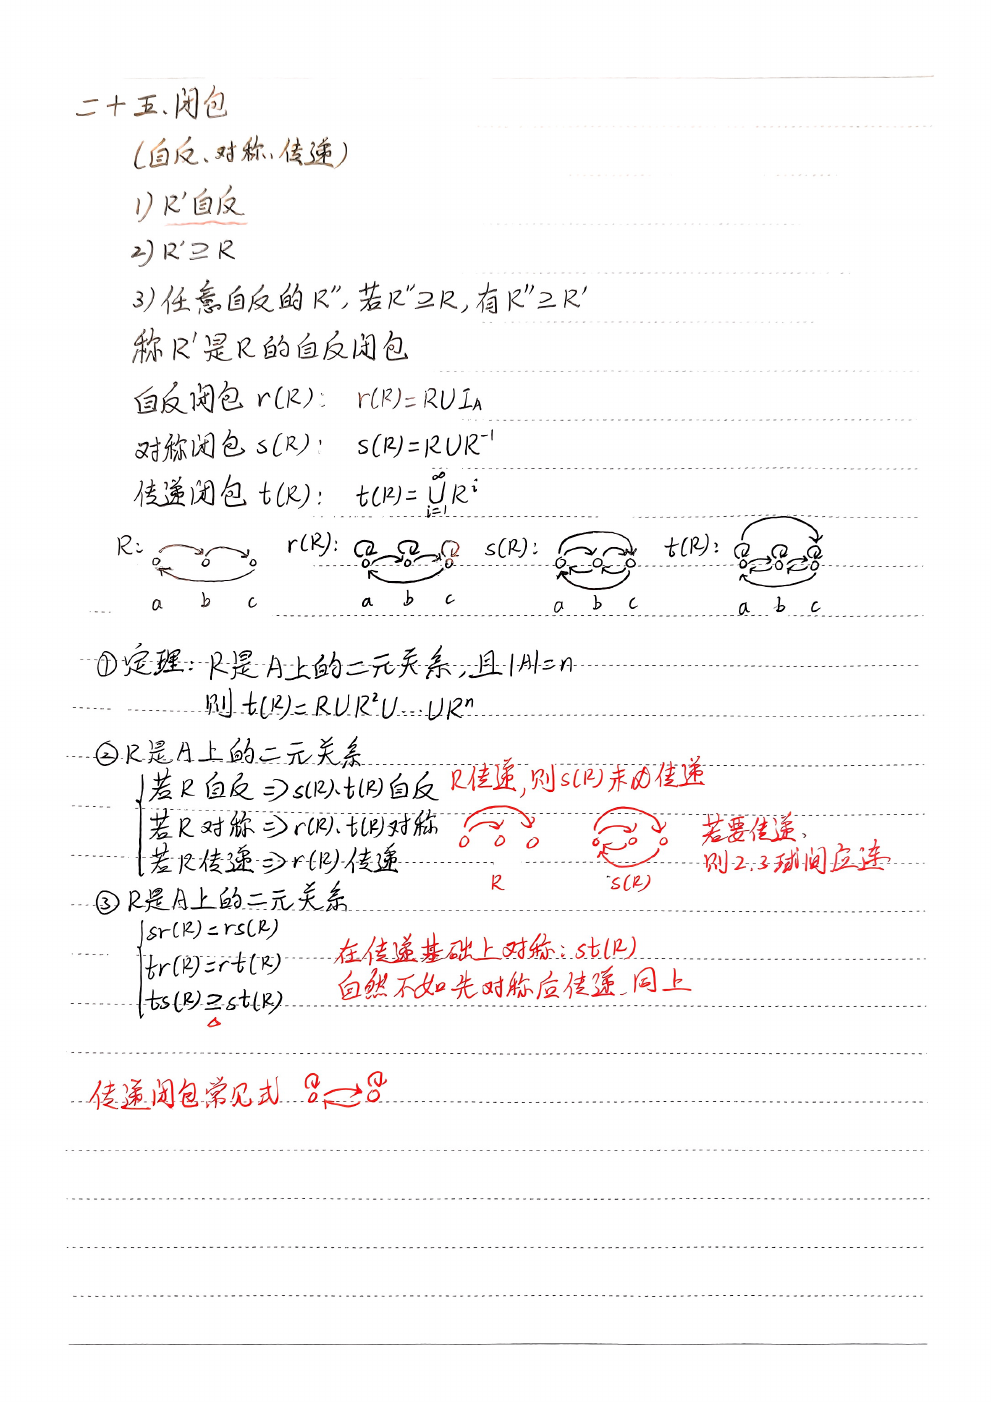 二十五、闭包
(自反、对称、传递)
1) R'自反
2) R'⊇R
3) 任意自反的R'', 若R''⊇R, 有R''⊇R'
称R'是R的自反闭包
自反闭包 r(R): r(R)=R∪I_A
对称闭包 s(R): s(R)=R∪R⁻¹
传递闭包 t(R): t(R)=∪_{i=1}^{∞} Rⁱ
R: r(R): s(R): t(R):
a b c a b c a b c a b c
①定理: R是A上的二元关系, 且|A|=n
则 t(R)=R∪R²∪…∪Rⁿ
②R是A上的二元关系
若R自反⇒s(R)、t(R)自反 R传递, 则s(R)未必传递
若R对称⇒r(R)、t(R)对称 若要传递、
若R传递⇒r(R)传递 则2.3球间应连
R s(R)
③R是A上的二元关系
sr(R)=rs(R)
tr(R)=rt(R) 在传递基础上对称: st(R)
ts(R)⊇st(R) 自然不如先对称后传递、同上
传递闭包常见式